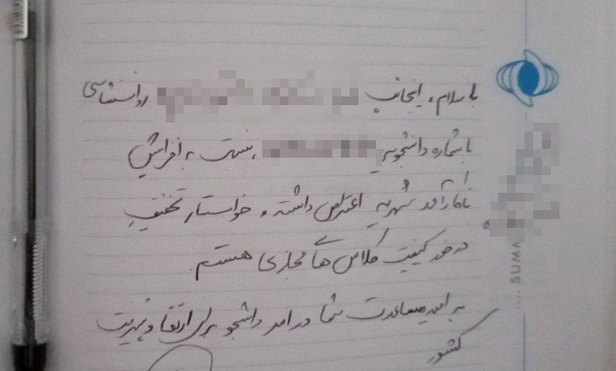 با سلام، اینجانب روانشناسی
با شماره دانشجویی نسبت به افزایش
ناکارآمد شهریه اعتراض داشته و خواستار تخفیف
در حد کیفیت کلاس های مجازی هستم
به امید مساعدت شما در امر دانشجو برای ارتقا و
کشور
SUMA